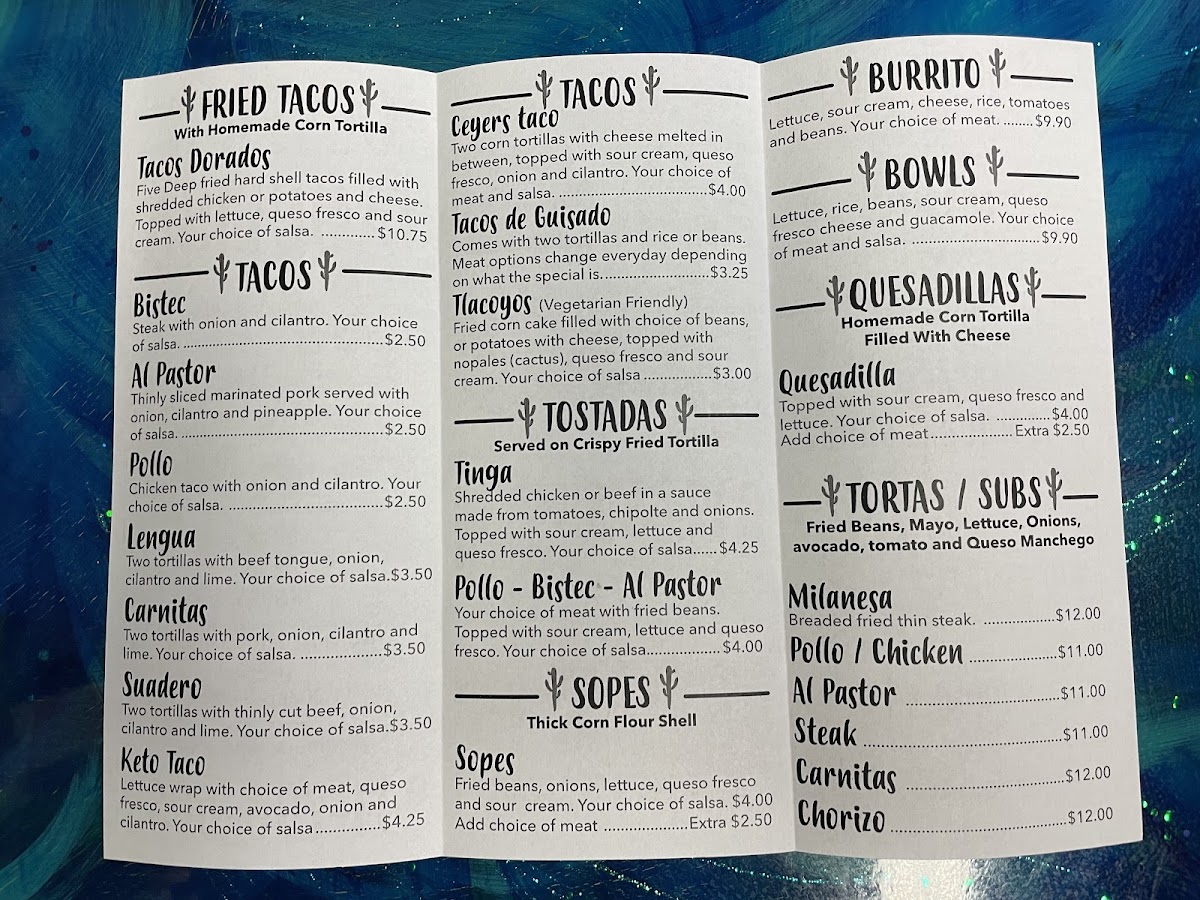 FRIED TACOS
With Homemade Corn Tortilla
Tacos Dorados
Five Deep fried hard shell tacos filled with
shredded chicken or potatoes and cheese.
Topped with lettuce, queso fresco and sour
cream. Your choice of salsa. ............$10.75
TACOS
Bistec
Steak with onion and cilantro. Your choice
of salsa. ..........................................$2.50
Al Pastor
Thinly sliced marinated pork served with
onion, cilantro and pineapple. Your choice
of salsa. ..........................................$2.50
Pollo
Chicken taco with onion and cilantro. Your
choice of salsa. ................................$2.50
Lengua
Two tortillas with beef tongue, onion,
cilantro and lime. Your choice of salsa.$3.50
Carnitas
Two tortillas with pork, onion, cilantro and
lime. Your choice of salsa. .................$3.50
Suadero
Two tortillas with thinly cut beef, onion,
cilantro and lime. Your choice of salsa.$3.50
Keto Taco
Lettuce wrap with choice of meat, queso
fresco, sour cream, avocado, onion and
cilantro. Your choice of salsa..............$4.25
TACOS
Ceyers taco
Two corn tortillas with cheese melted in
between, topped with sour cream, queso
fresco, onion and cilantro. Your choice of
meat and salsa. ................................$4.00
Tacos de Guisado
Comes with two tortillas and rice or beans.
Meat options change everyday depending
on what the special is.......................$3.25
Tlacoyos (Vegetarian Friendly)
Fried corn cake filled with choice of beans,
or potatoes with cheese, topped with
nopales (cactus), queso fresco and sour
cream. Your choice of salsa ...............$3.00
TOSTADAS
Served on Crispy Fried Tortilla
Tinga
Shredded chicken or beef in a sauce
made from tomatoes, chipolte and onions.
Topped with sour cream, lettuce and
queso fresco. Your choice of salsa...... $4.25
Pollo - Bistec - Al Pastor
Your choice of meat with fried beans.
Topped with sour cream, lettuce and queso
fresco. Your choice of salsa................. $4.00
SOPES
Thick Corn Flour Shell
Sopes
Fried beans, onions, lettuce, queso fresco
and sour cream. Your choice of salsa. $4.00
Add choice of meat ....................Extra $2.50
BURRITO
Lettuce, sour cream, cheese, rice, tomatoes
and beans. Your choice of meat. ........$9.90
BOWLS
Lettuce, rice, beans, sour cream, queso
fresco cheese and guacamole. Your choice
of meat and salsa. ..............................$9.90
QUESADILLAS
Homemade Corn Tortilla
Filled With Cheese
Quesadilla
Topped with sour cream, queso fresco and
lettuce. Your choice of salsa. .............$4.00
Add choice of meat....................Extra $2.50
TORTAS / SUBS
Fried Beans, Mayo, Lettuce, Onions,
avocado, tomato and Queso Manchego
Milanesa
Breaded fried thin steak. .................$12.00
Pollo / Chicken .....................$11.00
Al Pastor .....................................$11.00
Steak ...............................................$11.00
Carnitas .....................................$12.00
Chorizo ..........................................$12.00